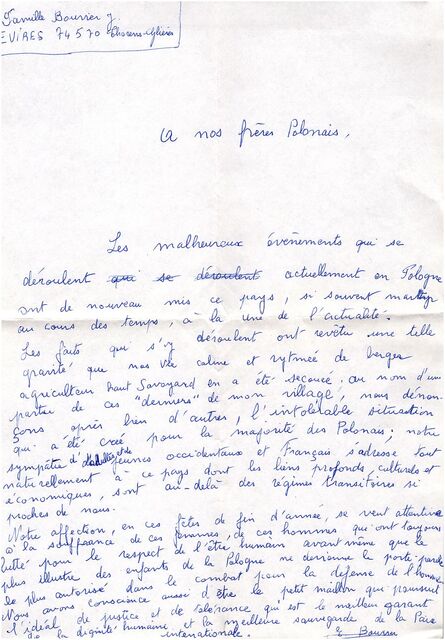 Famille Bouvier J
EVIRES 74570 Thorens-Glières
A nos frères Polonais,
Les malheureux évènements qui se
déroulent qui se déroulent actuellement en Pologne
ont de nouveau mis ce pays, si souvent martyr
au cours des temps, à la une de l'actualité.
Les faits qui s'y déroulent ont revêtu une telle
gravité que ma vie calme et rytmée de berger
agriculteur haut Savoyard en a été secouée. Au nom d'une
partie de ces "derniers" de mon village, nous dénon-
çons après bien d'autres, l'intolérable situation
qui a été créé pour la majorité des Polonais; notre
sympatie d'adultes et de jeunes occidentaux et Français, s'adresse tout
naturellement à ce pays dont les liens profonds, culturels et
économiques, sont au-delà des régimes transitoires si
proches de nous.
Notre affection, en ces fêtes de fin d'année, se veut attentive
à la souffrance de ces femmes, de ces hommes qui ont toujours
lutté pour le respect de l'être humain avant même que le
plus illustre des enfants de la Pologne ne devienne le porte-parole
le plus autorisé dans le combat pour la défense de l'homme.
Nous avons conscience aussi d'être le petit maillon qui poursuit
l'idéal de justice et de tolérance qui est le meilleur garant
de la dignité humaine et la meilleure sauvegarde de la Paix
internationale.
Bouvier